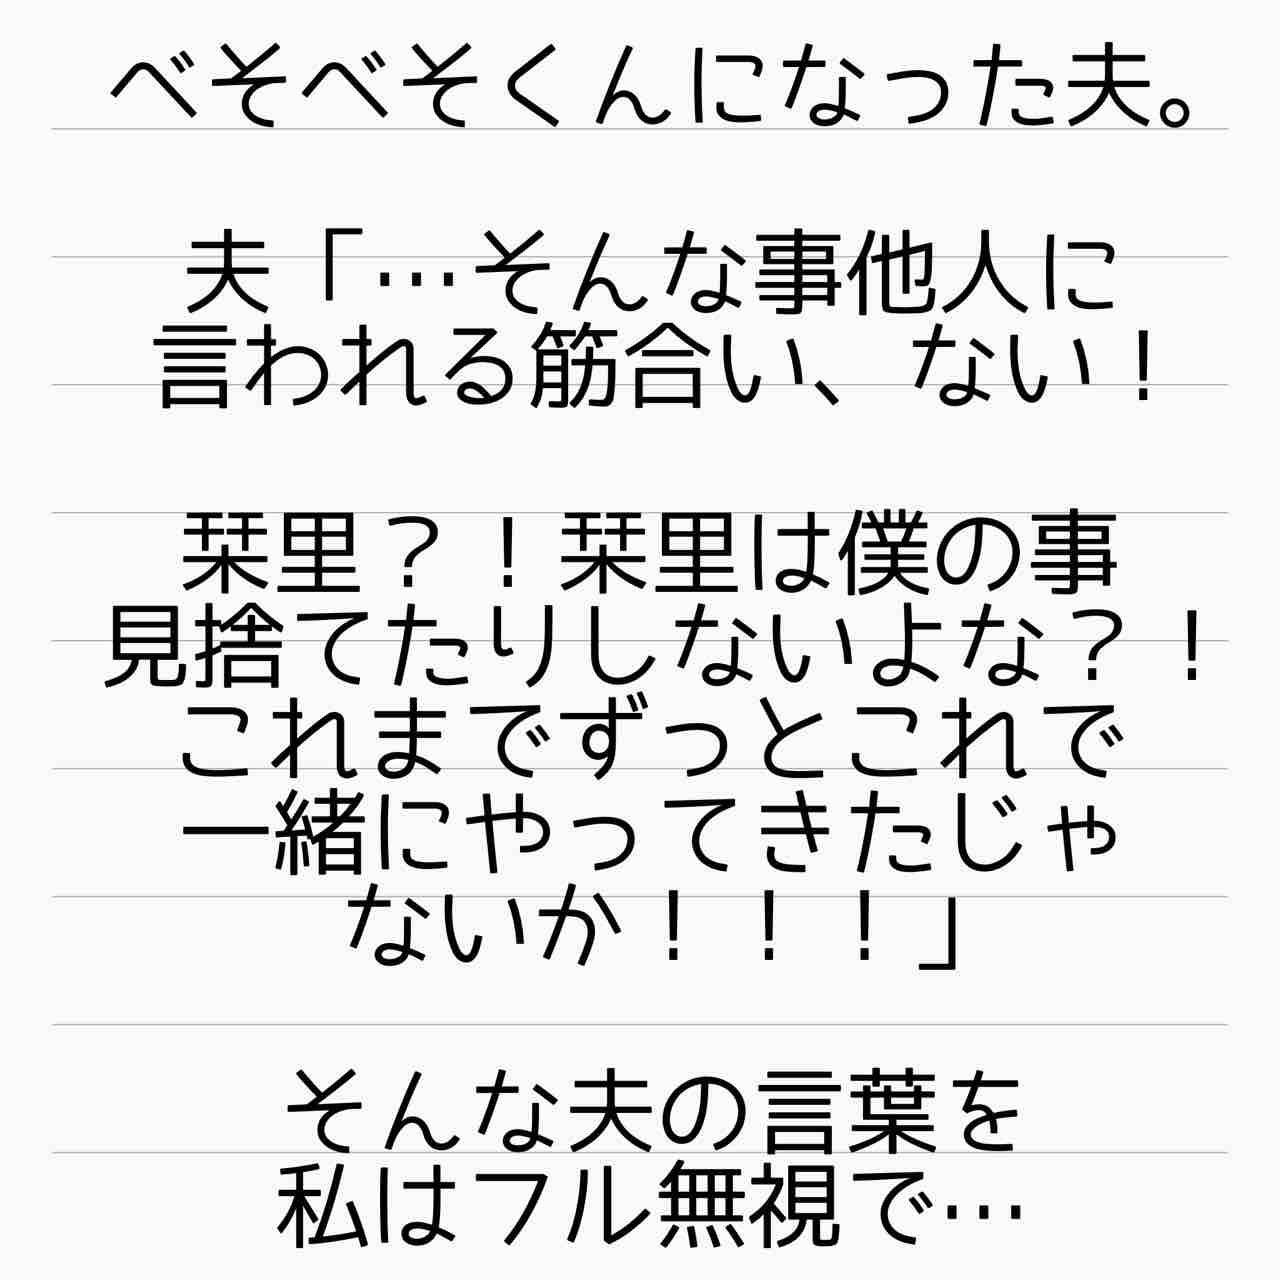 べそべそくんになった夫。
夫「…そんな事他人に
言われる筋合い、ない！
栞里？！栞里は僕の事
見捨てたりしないよな？！
これまでずっとこれで
一緒にやってきたじゃ
ないか！！！」
そんな夫の言葉を
私はフル無視で…